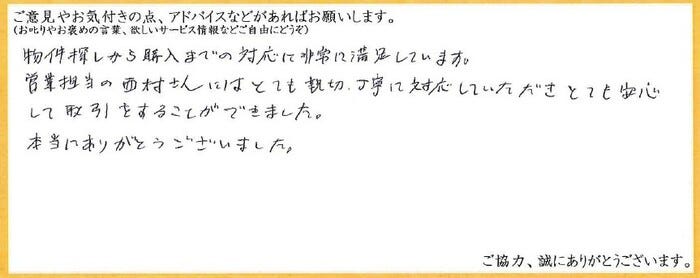 ご意見やお気付きの点、アドバイスなどがあればお願いします。
(お叱りやお褒めの言葉、欲しいサービス情報などご自由にどうぞ)
物件探しから購入までの対応に非常に満足しています。
営業担当の西村さんにはとても親切、丁寧に対応していただきとても安心
して取引をすることができました。
本当にありがとうございました。
ご協力、誠にありがとうございます。